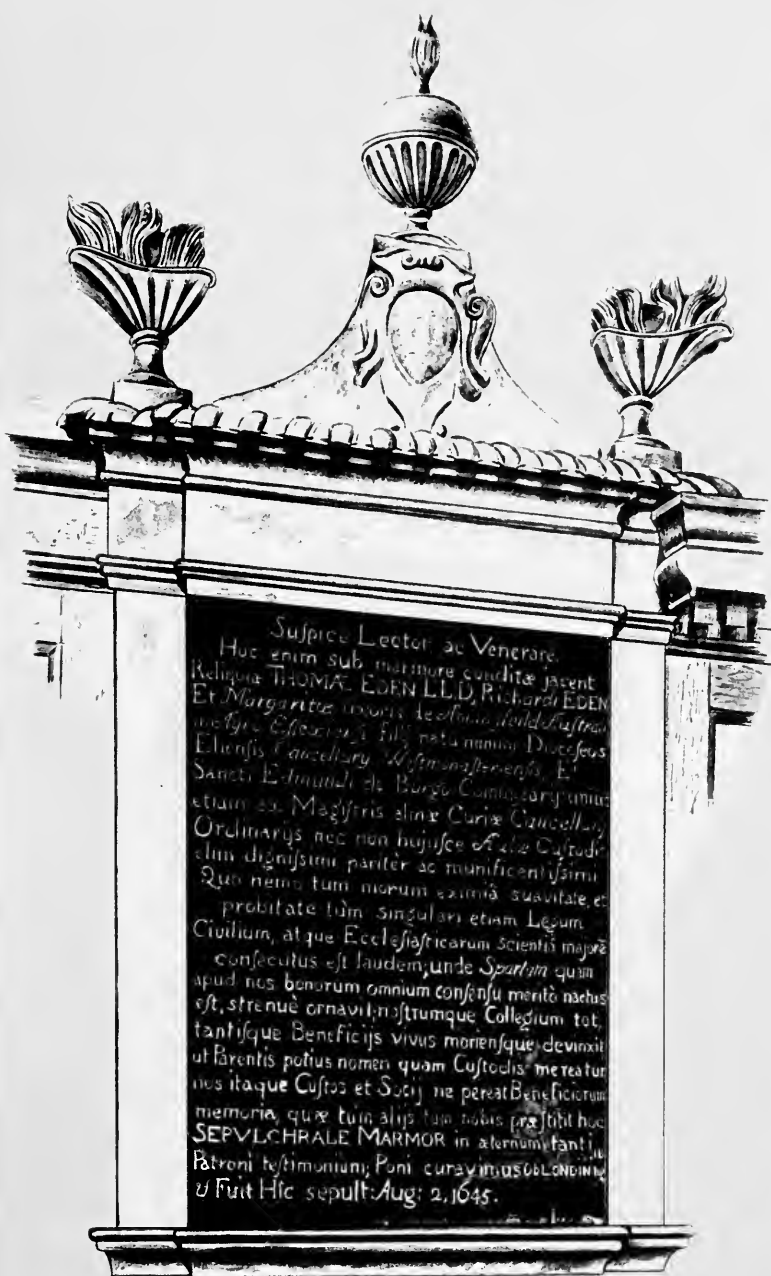 Suſpice Lector ac Venerare.
Hoc enim sub marmore conditæ jacent
Reliquiæ THOMÆ EDEN LL.D, Richardi EDEN
Et Margaritæ uxoris de
filij natu minimi Diœceſeos
Elienſis Cancellarij Weſtmonaſterienſis, Et
Sancti Edmundi de Burgo Commiſſarij unius
etiam ex Magiſtris almæ Curiæ Cancellariæ
Ordinarijs nec non hujuſce Aulæ Cuſtodis
olim digniſſimi paritèr ac munificentiſſimi
Quo nemo tum morum eximiâ suavitate, et
probitate tùm singulari etiam Legum
Civilium, atque Eccleſiaſticarum Scientiâ majorē
conſecutus eſt laudem; unde Spartam quam
apud nos bonorum omnium conſenſu meritò nactus
eſt, strenuè ornavit; noſtrumque Collegium tot,
tantiſque Beneficijs vivus morienſque devinxit
ut Parentis potius nomen quam Cuſtodis mereatur
nos itaque Cuſtos et Socij ne pereat Beneficiorum
memoria, quæ tum alijs tum nobis præſtitit hoc
SEPVLCHRALE MARMOR in æternum tanti
Patroni teſtimonium, Poni curavimus OB LONDINI
Fuit Hic sepult: Aug: 2, 1645.